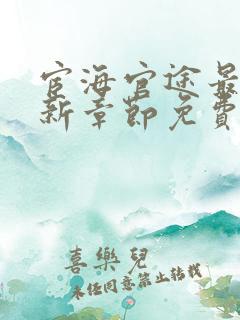 宦海官途最
新章節免費
喜樂兒
未經同意禁止轉載